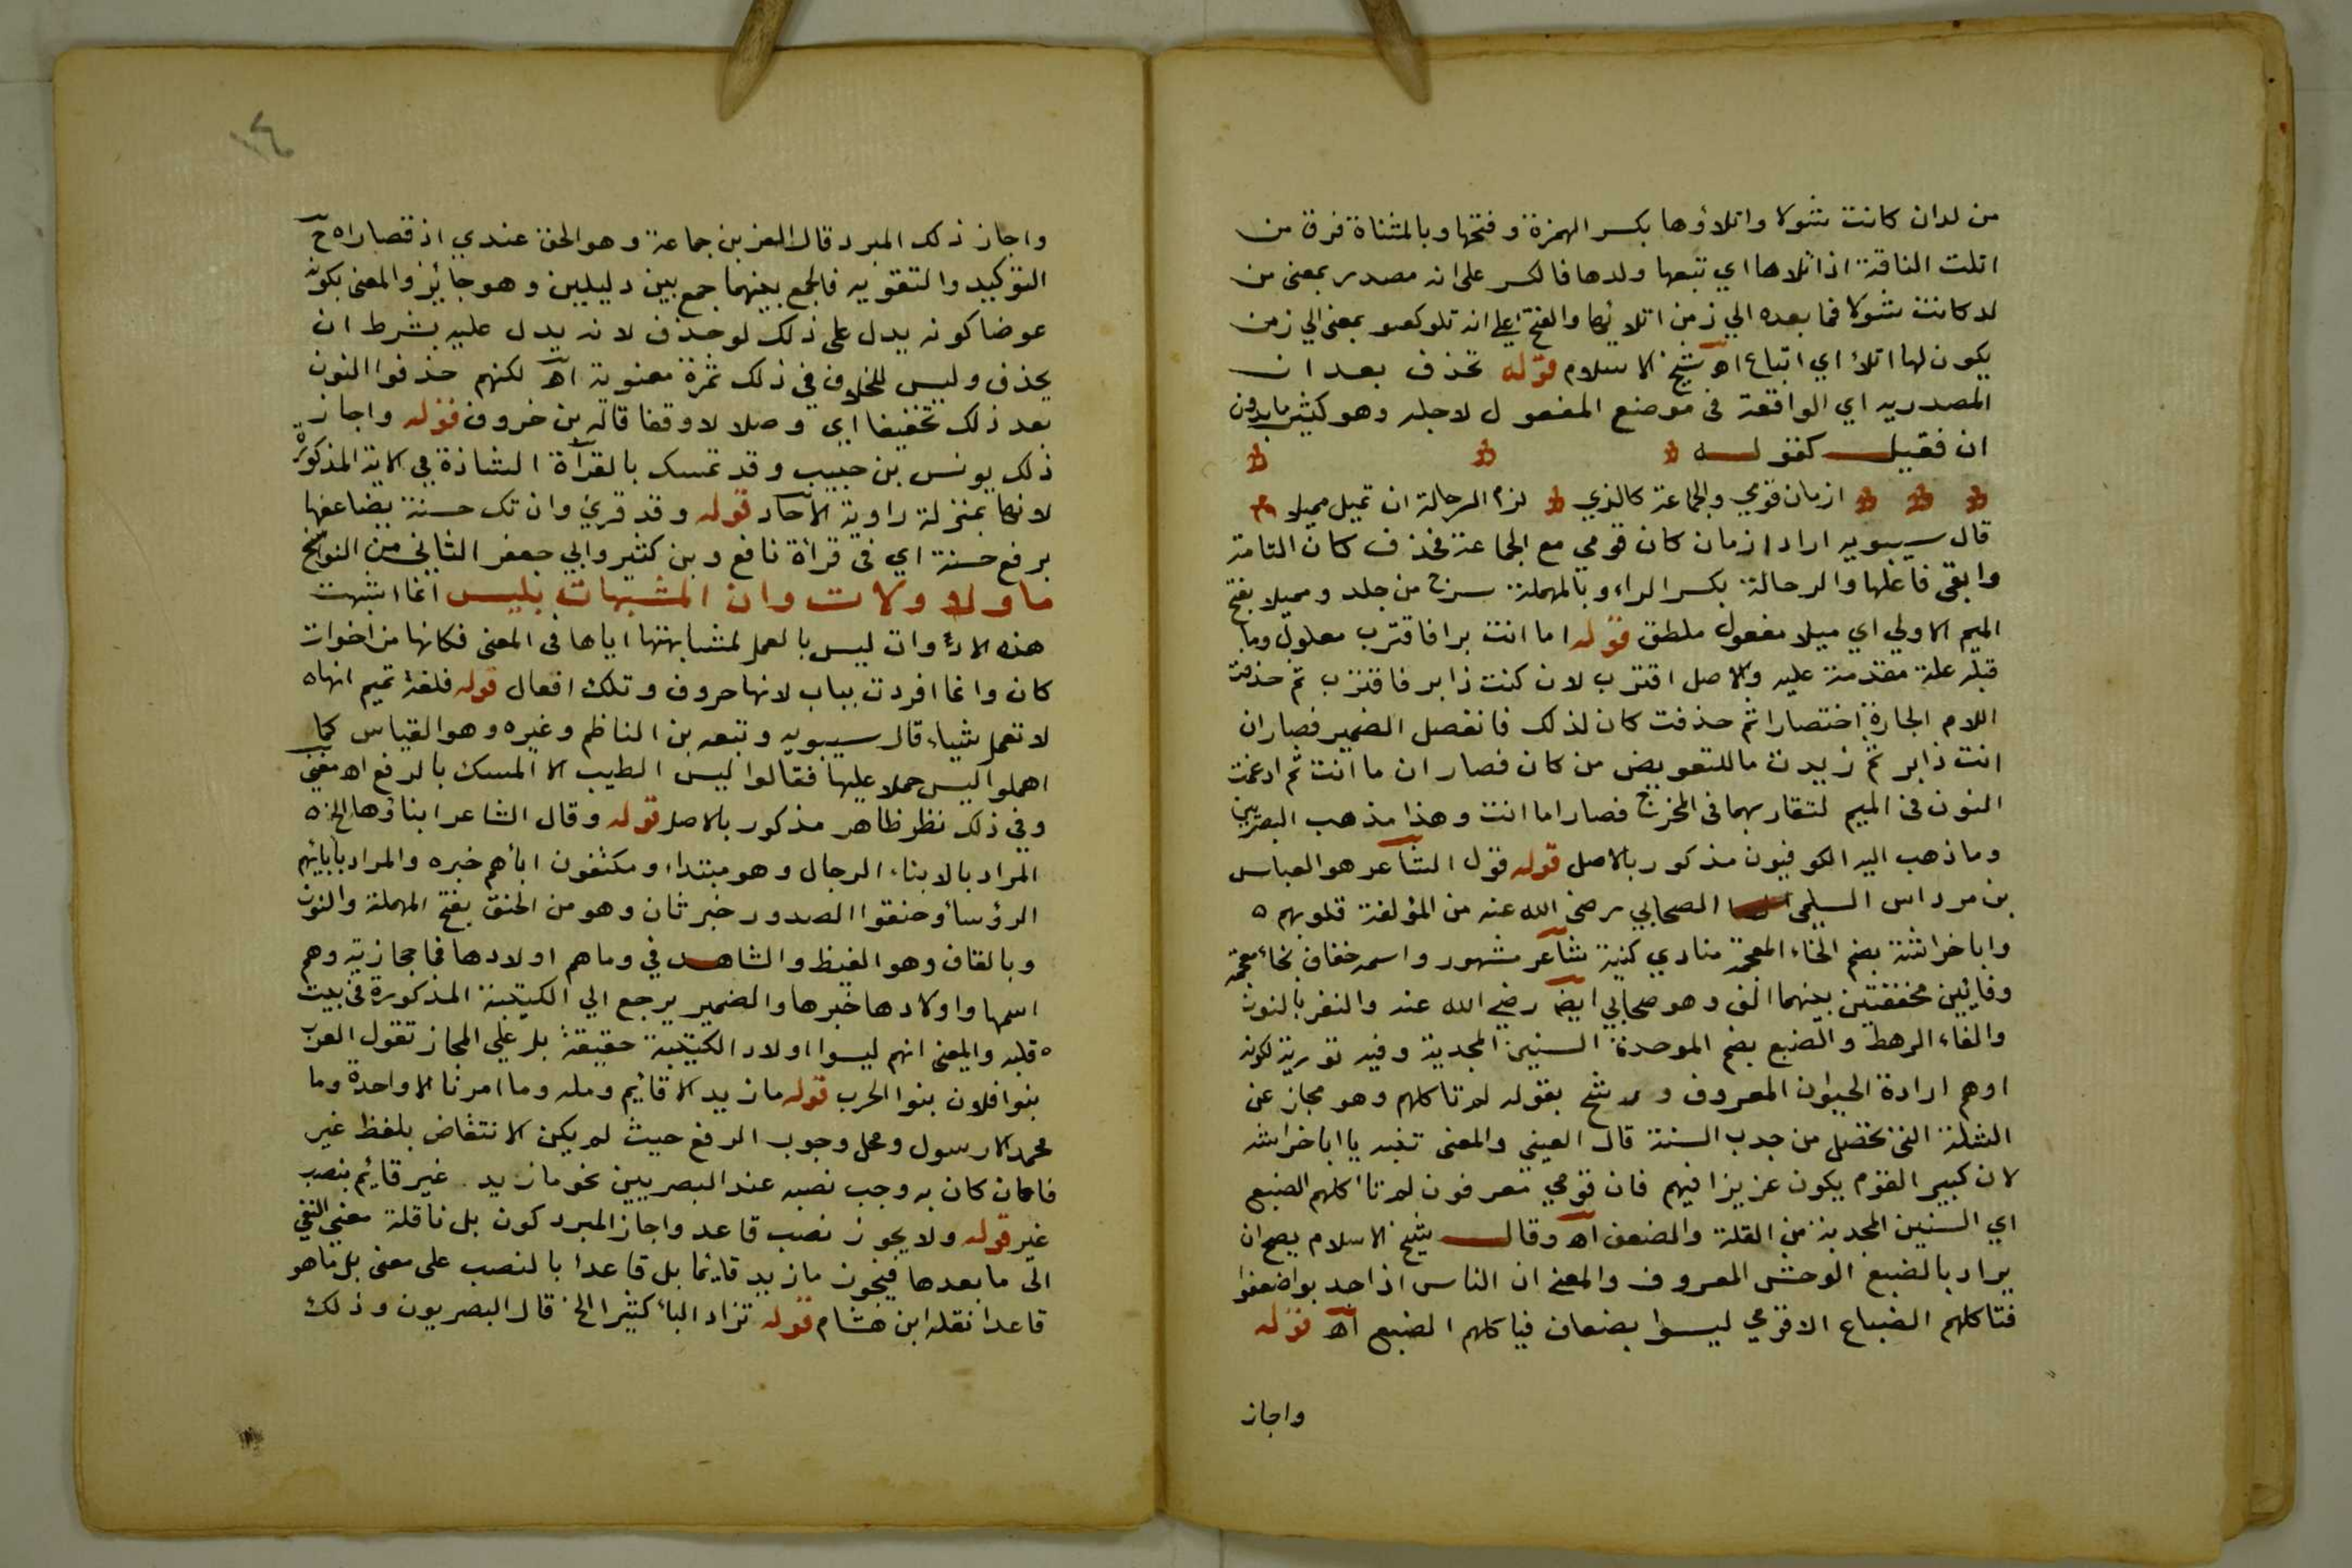 من لدان كانت شولا واتلاؤها بكسر الهمزة وفتحها وبالمثناة فرق من
اتلت الناقة اذا تلاها اي تبعها ولدها فالكسر على انه مصدر بمعنى من
لد كانت شولا فما بعده الي زمن اتلائها والفتح علي انه تلو بمعنى الي زمن
يكون لها اتلأ اي اتباع اه شيخ الاسلام قوله تحذف بعد ان
المصدريه اي الواقعة في موضع المفعول لاجله وهو كثير ما بدون
ان فقيل كقوله
ازمان قومي والجماعة كالذي لزم الرحالة ان تميل مميلا
قال سيبويه اراد ازمان كان قومي مع الجماعة فحذف كان التامة
وابقى فاعلها والرحالة بكسر الراء وبالمهملة سرج من جلد ومميلا بفتح
الميم الاولي اي ميلا مفعول مطلق قوله اما انت برا فاقترب معلول وما
قبله علة مقدمة عليه والاصل اقترب لان كنت ذا بر فاقترب ثم حذفت
اللام الجارة اختصارا ثم حذفت كان لذلك فانفصل الضمير فصار ان
انت ذا بر ثم زيدت ما للتعويض من كان فصار ان ما انت ثم ادغمت
النون في الميم لتقاربهما في المخرج فصار اما انت وهذا مذهب البصريين
وما ذهب اليه الكوفيون مذكور بالاصل قوله قول الشاعر هو العباس
بن مرداس السلمي الصحابي رضي الله عنه من المؤلفة قلوبهم ه
وابا خراشة بضم الخاء المعجمة منادي كنية شاعر مشهور واسمه خفاف بخاء معجمه
وفايين مخففتين بينهما الف وهو صحابي ايضا رضي الله عنه والنفر بالنون
والفاء الرهط والضبع بضم الموحدة السنين المجدبة وفيه تورية لكونه
اوهم ارادة الحيوان المعروف ورشح بقوله لم تاكلهم وهو مجاز عن
الشلة التي تحصل من جدب السنة قال العيني والمعنى تنبه يا ابا خراشه
لان كبير القوم يكون عزيزا فيهم فان قومي معرفون لم تاكلهم الضبع
اي السنين المجدبة من القلة والضعف اه وقال شيخ الاسلام يصح ان
يراد بالضبع الوحش المعروف والمعنى ان الناس اذا اجدبوا ضعفوا
فتاكلهم الضباع الاقومي ليسوا بضعاف فياكلهم الضبع اه قوله
واجاز
١٤
واجاز ذلك المبرد قال العز بن جماعة وهو الحق عندي اذ قصاراه ح
التوكيد والتقويه فالجمع بينهما جمع بين دليلين وهو جائز والمعنى بكونه
عوضا كونه يدل على ذلك لو حذف لانه يدل عليه بشرط ان
يحذف وليس للخلاف في ذلك ثمرة معنوية اه لكنهم حذفوا النون
بعد ذلك تخفيفا اي وصلا لا وقفا قاله بن خروف قوله واجاز
ذلك يونس بن حبيب وقد تمسك بالقرأة الشاذة في الاية المذكورة
لانها بمنزلة راوية الاحاد قوله وقد قرئ وان تك حسنة يضاعفها
برفع حسنة اي في قرأة نافع وبن كثير وابي جعفر الثاني من النواسخ
ما ولا ولات وان المشبهات بليس انما اشبهت
هذه الادوات ليس بالعمل لمشابهتها اياها في المعنى فكانها من اخوات
كان وانما افردت بباب لانها حروف وتلك افعال قوله فلغة تميم انها ه
لا تعمل شياء قال سيبويه وتبعه بن الناظم وغيره وهو القياس كما
اهملوا ليس حملا عليها فقالوا ليس الطيب الا المسك بالرفع اه مغني
وفي ذلك نظر ظاهر مذكور بالاصل قوله وقال الشاعر ابناؤها الخ ه
المراد بالابناء الرجال وهو مبتداء ومكنفون ابأهم خبره والمراد بابائهم
الرؤسأ وحنقوا الصدور خبر ثان وهو من الحنق بفتح المهملة والنون
وبالقاف وهو الغيظ والشاهد في وما هم اولادها فما حجازية وهم
اسمها واولادها خبرها والضمير يرجع الي الكتيبة المذكورة في بيت
ه قبله والمعنى انهم ليسوا اولاد الكتيبة حقيقة بل علي المجاز تقول العرب
بنوا فلان بنوا الحرب قوله ما زيد الا قائيم ومله وما امرنا الا واحدة وما
محمد الا رسول ومحل وجوب الرفع حيث لم يكن الانتفاض بلفظ غير
فاما ان كان به وجب نصبه عند البصريين نحو ما زيد غير قائم بنصب
غير قوله ولا يجوز نصب قاعد واجاز المبرد كون بل ناقلة معنى النفي
الى ما بعدها فيجوز ما زيد قائما بل قاعدا بالنصب على معنى بل ما هو
قاعدا نقله ابن هشام قوله تزاد البأ كثيرا الخ قال البصريون وذلك